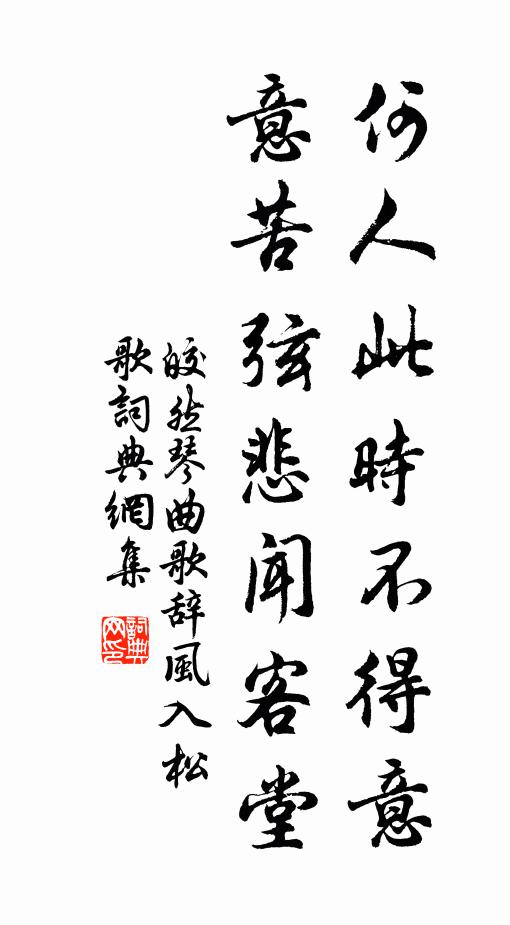 何人此時不得意
意苦弦悲聞客堂
皎然琴曲歌辭風入松
歌詞典網集
詞典网印